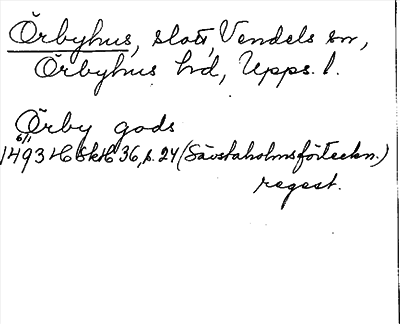 Örbyhus, slott, Vendels sn,
Örbyhus hd, Upps. l.
Örby gods
6/1
1493 HSkH 36, s. 24 (Sävstaholmsförteckn.)
regest.